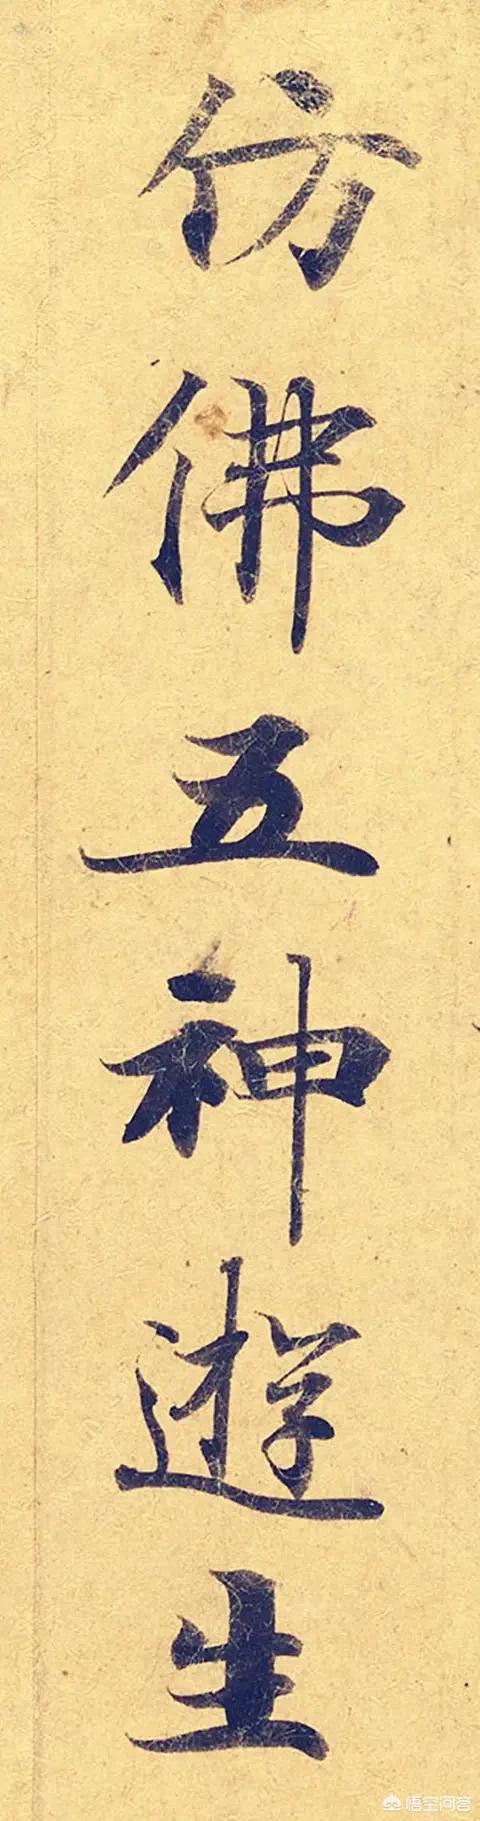 仿佛五神遊生
悟空问答